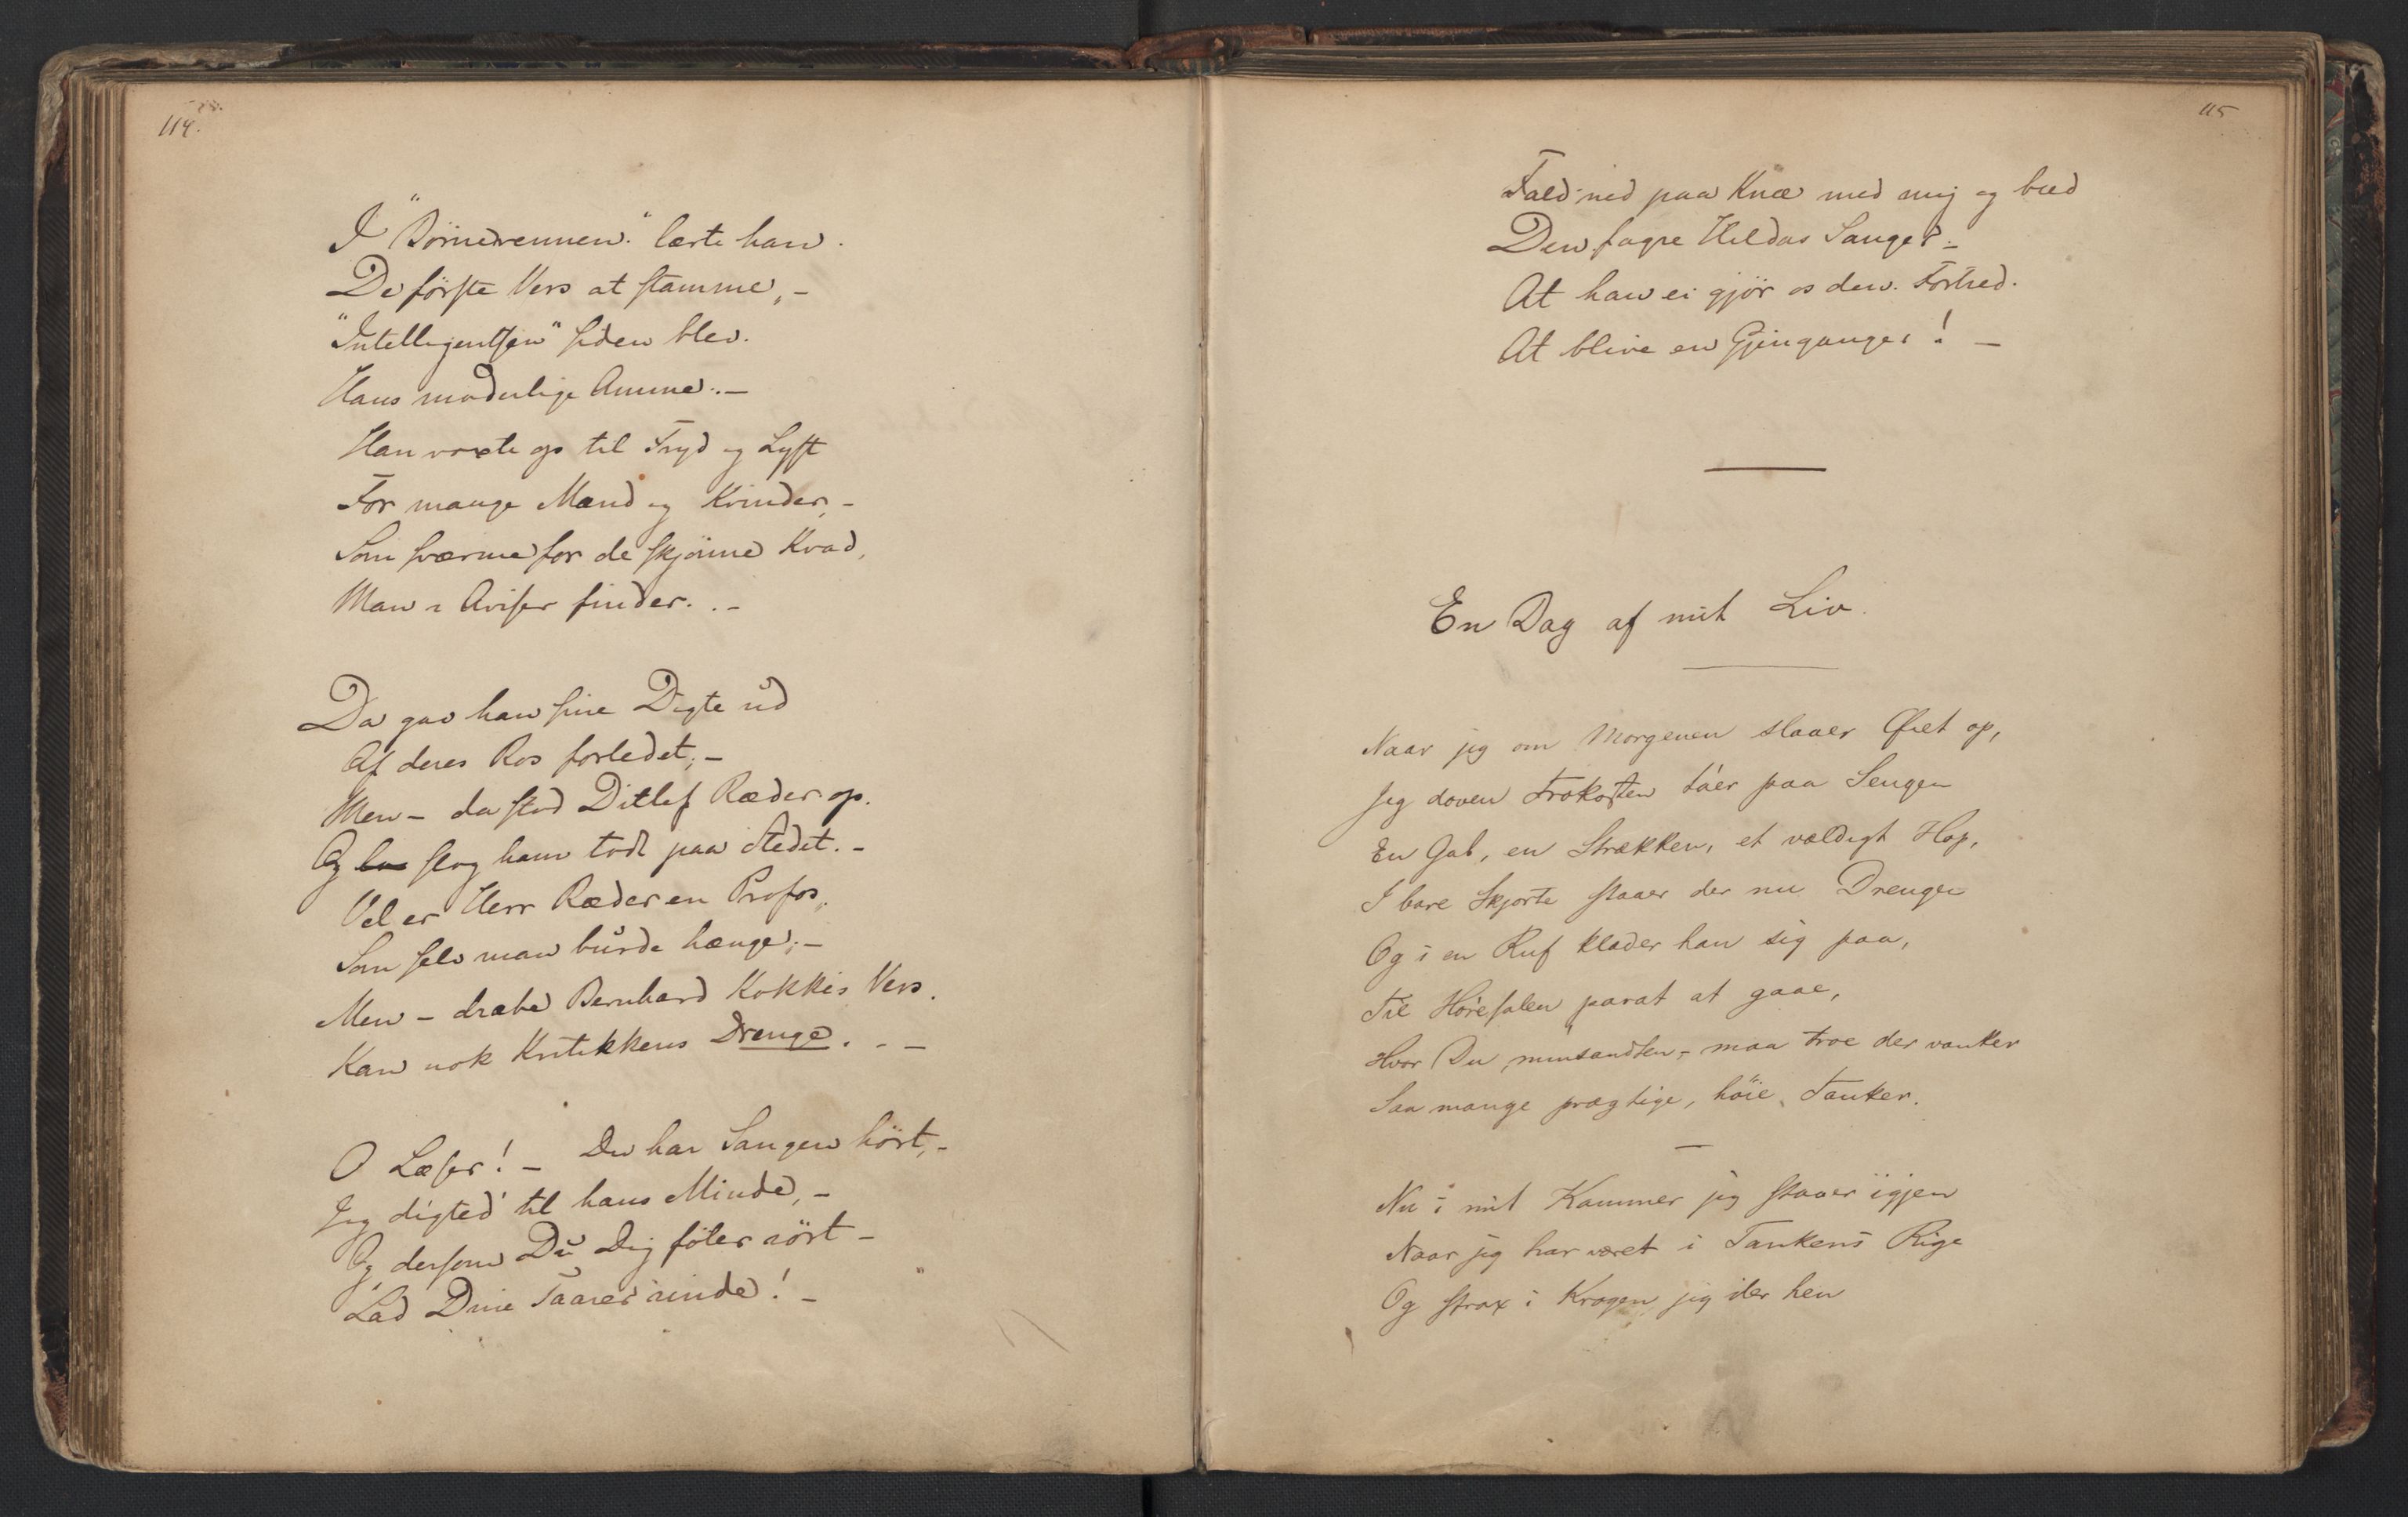 114.
I "Börnevennen" lærte han.
De förste Vers at stamme, -
"Intelligentsen" siden blev.
Hans moderlige Amme. -
Han voxte op til Fryd og Lyst
For mange Mænd og Kvinder, -
Som sværme for de skjönne Kvad,
Man i Aviser finder. . -
Da gav han sine Digte ud
Af deres Ros forledet; -
Men - da stod Ditlef Ræder op.
Og slog ham todt paa Stedet. -
Vel er Herr Ræder en Profos,
Som selv man burde hænge; -
Men - dræbe Bernhard Kokkis Vers.
Kan nok Kritikkens Drenge. - -
O Læser! - Du har Sangen hört, -
Jeg digted' til hans Minde, -
Og dersom Du Dig föler rört -
Lad Dine Taarer rinde! -
115
Fald ned paa Knæ med mig og bed
Den fagre Hildas Sanger -
At han ei gjör os den Fortred.
At blive en Gjenganger! -
En Dag af mit Liv.
Naar jeg om Morgenen slaaer Öiet op,
Jeg doven Frokosten taer paa Sengen
En Gab, en Strækken, et vældigt Hop,
I bare Skjorte staaer der nu Drengen
Og i en Ruf klæder han sig paa,
Til Höresalen parat at gaae,
Hvor Du, minsandten, - maa troe der vanker
Saa mange prægtige, höie Tanker.
Nu i mit Kammer jeg staaer igjen
Naar jeg har været i Tankens Rige
Og strax i Krogen jeg iler hen